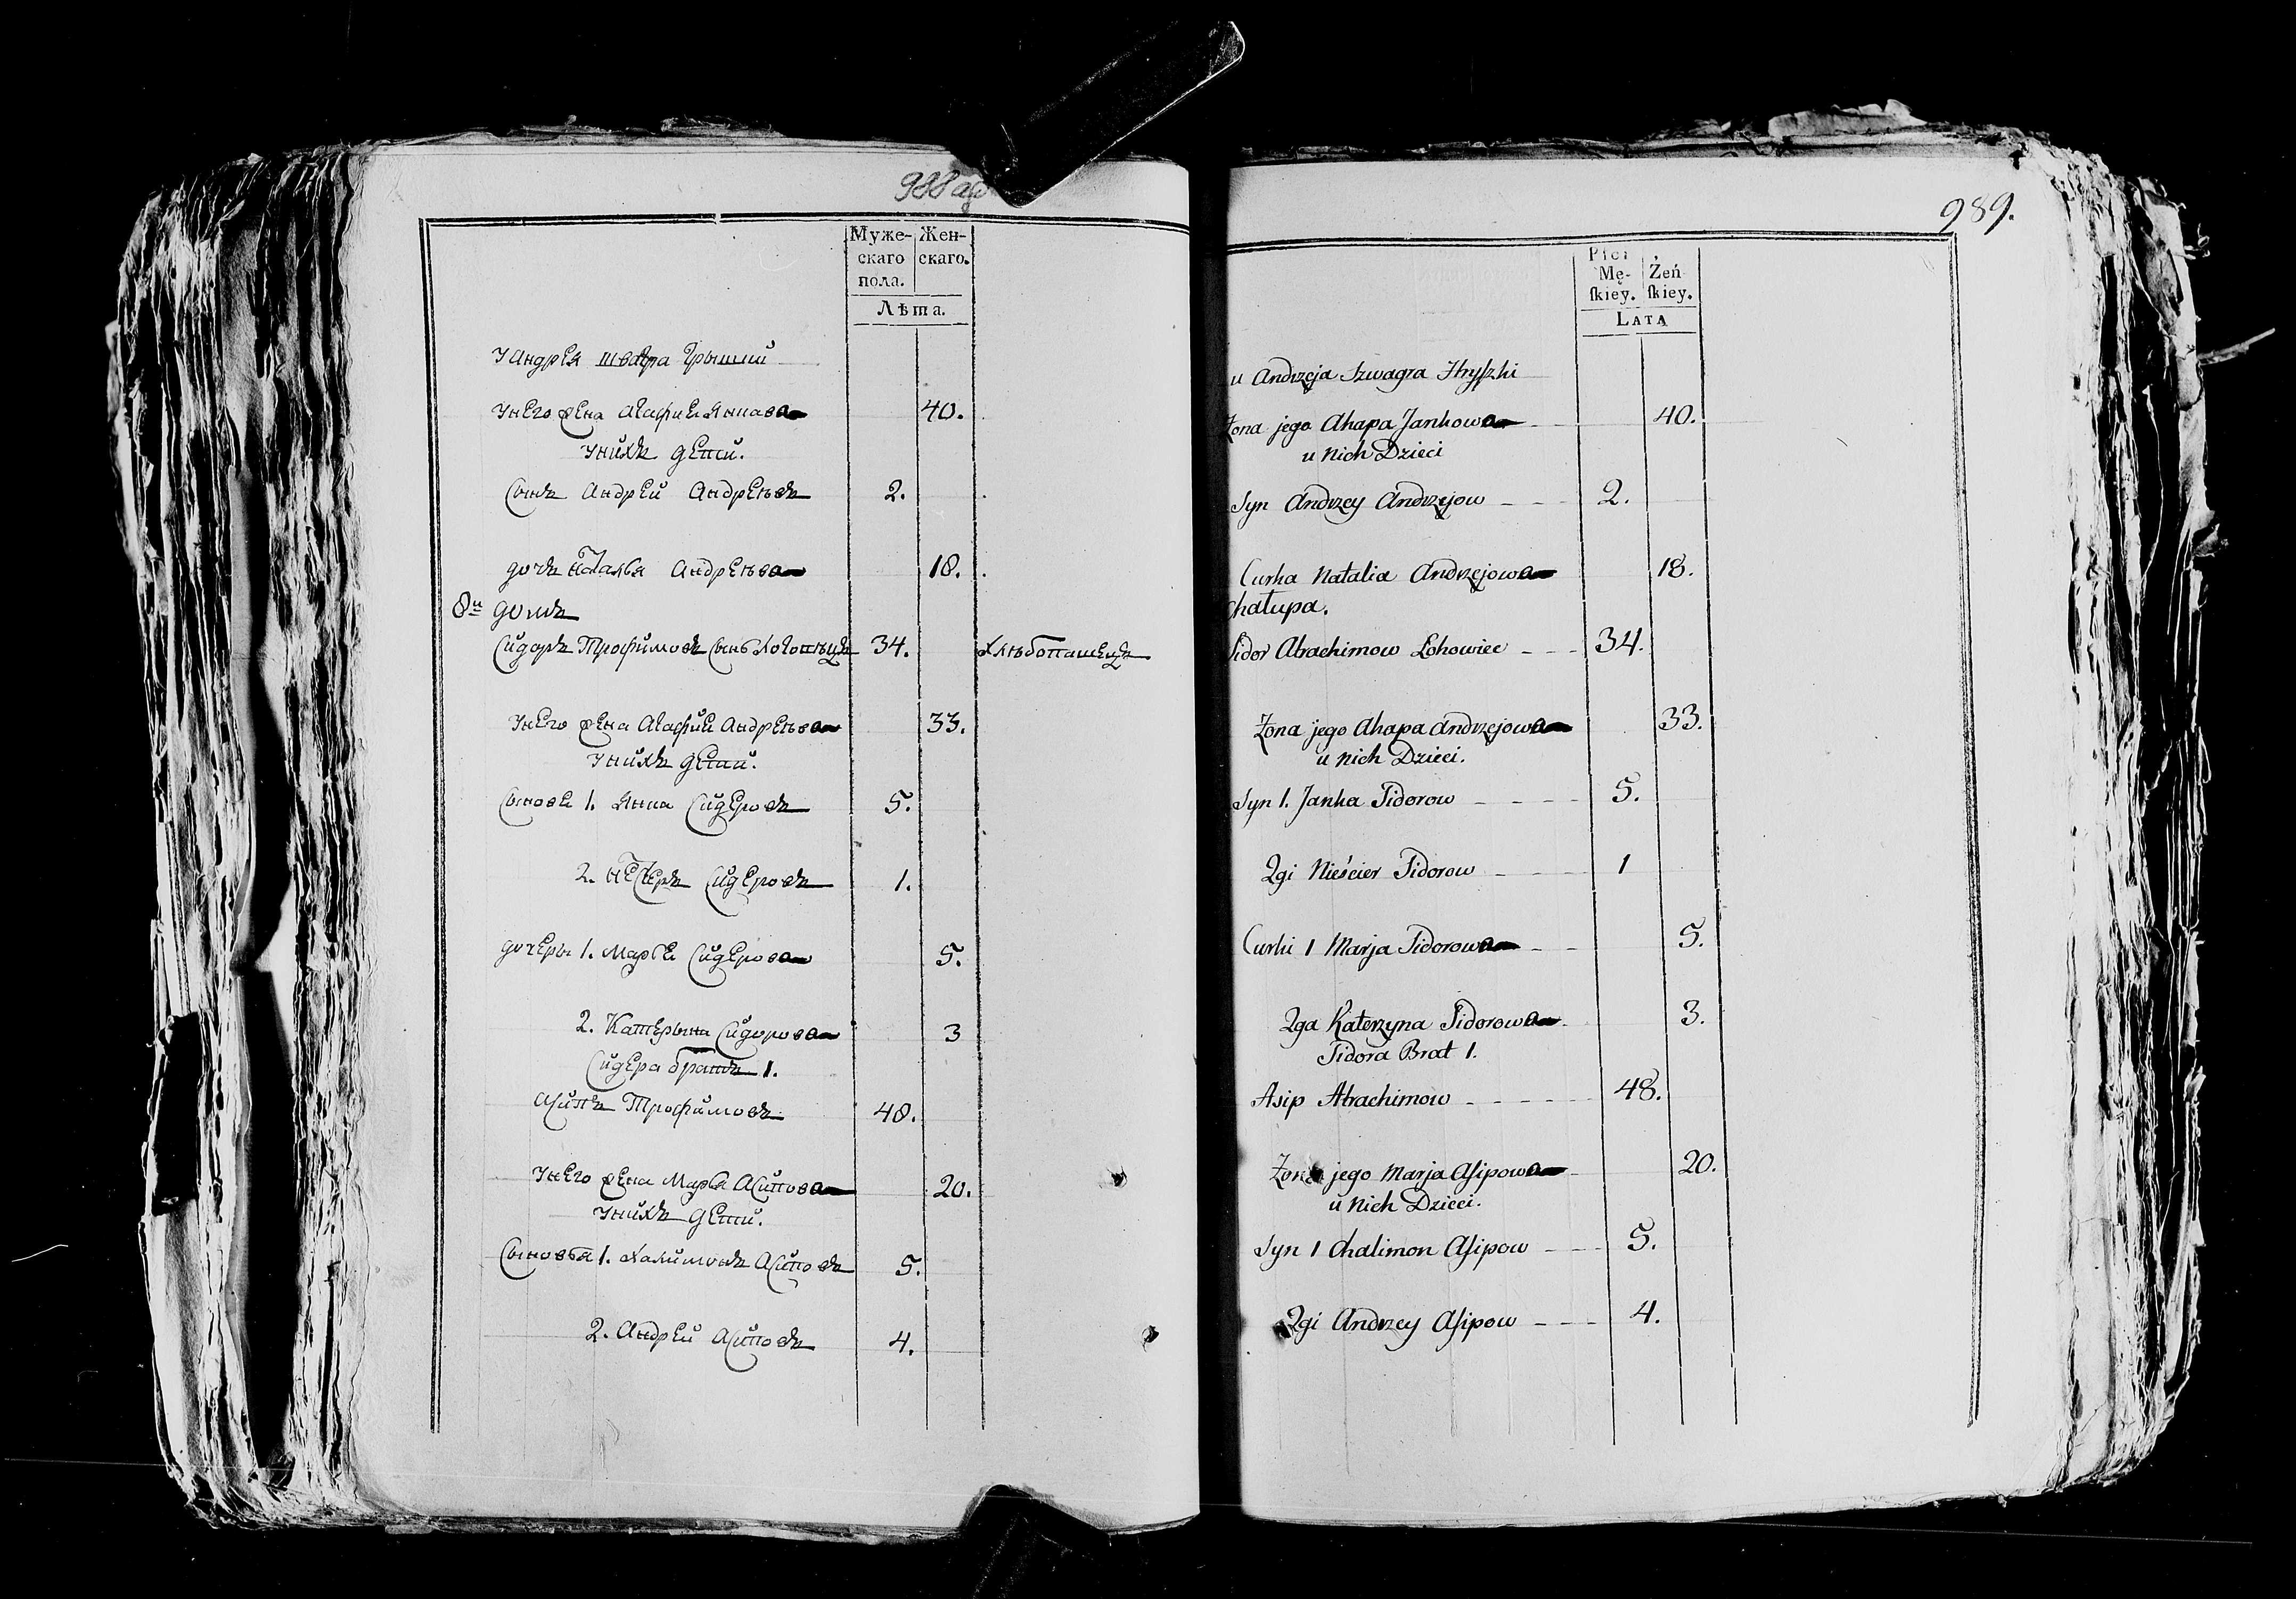 988 об
Муже-
скаго
пола.
Жен-
скаго.
Лѣта.
У Андрея швагра Грышки
У него жена Агафия Янкова
40.
У нихъ дети.
Сынъ Андрей Андреѣвъ
2.
дочъ Наталья Андреѣва
18.
8й домъ
Сидоръ Трофимовъ сынъ
34.
Хлѣбопашецъ
У него жена Агафия Андреѣва
33.
У нихъ дети.
Сынове 1. Янка Сидеровъ
5.
2. Нестеръ Сидеровъ
1.
дочеры 1. Марье Сидерова
5.
2. Катерына Сидорова
3
Сидера братъ 1.
Асипъ Трофимовъ
48.
У него жена Марья Асипова
20.
У нихъ дети.
Сыновья 1. Халимонъ Асиповъ
5.
2. Андрей Асиповъ
4.
989.
Płci
Mę-
skiey.
Żeń
skiey.
LATA
u Andrzeja Szwagra Hryszki
Żona jego Ahapa Jankowa
40.
u Nich Dzieci
Syn Andrzey Andrzejow
2.
Curka Natalia Andrzejowa
18.
Chałupa.
Sidor Atrachimow Lohowiec
34.
Żona jego Ahapa Andrzejowa
33.
u Nich Dzieci.
Syn 1. Janka Sidorow
5.
2gi Nieścier Sidorow
1
Curki 1 Marja Sidorowa
5.
2ga Katerzyna Sidorowa
3.
Sidora Brat 1.
Asip Atrachimow
48.
Żona jego Marja Asipowa
20.
u Nich Dzieci.
Syn 1 Chalimon Asipow
5.
2gi Andrzey Asipow
4.